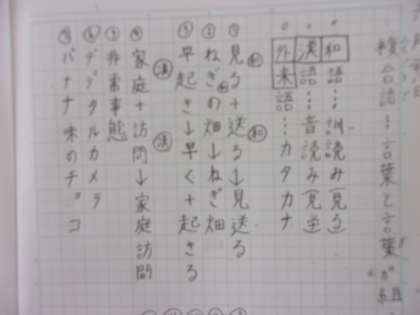 複合語…言葉と言葉
和語…訓読み(見る)
漢語…音読み(見学)
外来語…カタカナ
和
①見る+送る→見送る
和
②ねぎの畑→ねぎ畑
③早起き→早く+起きる
漢
④家庭+訪問→家庭訪問
漢
⑤非常事態
⑥デジタルカメラ
バナナ味のチョコ